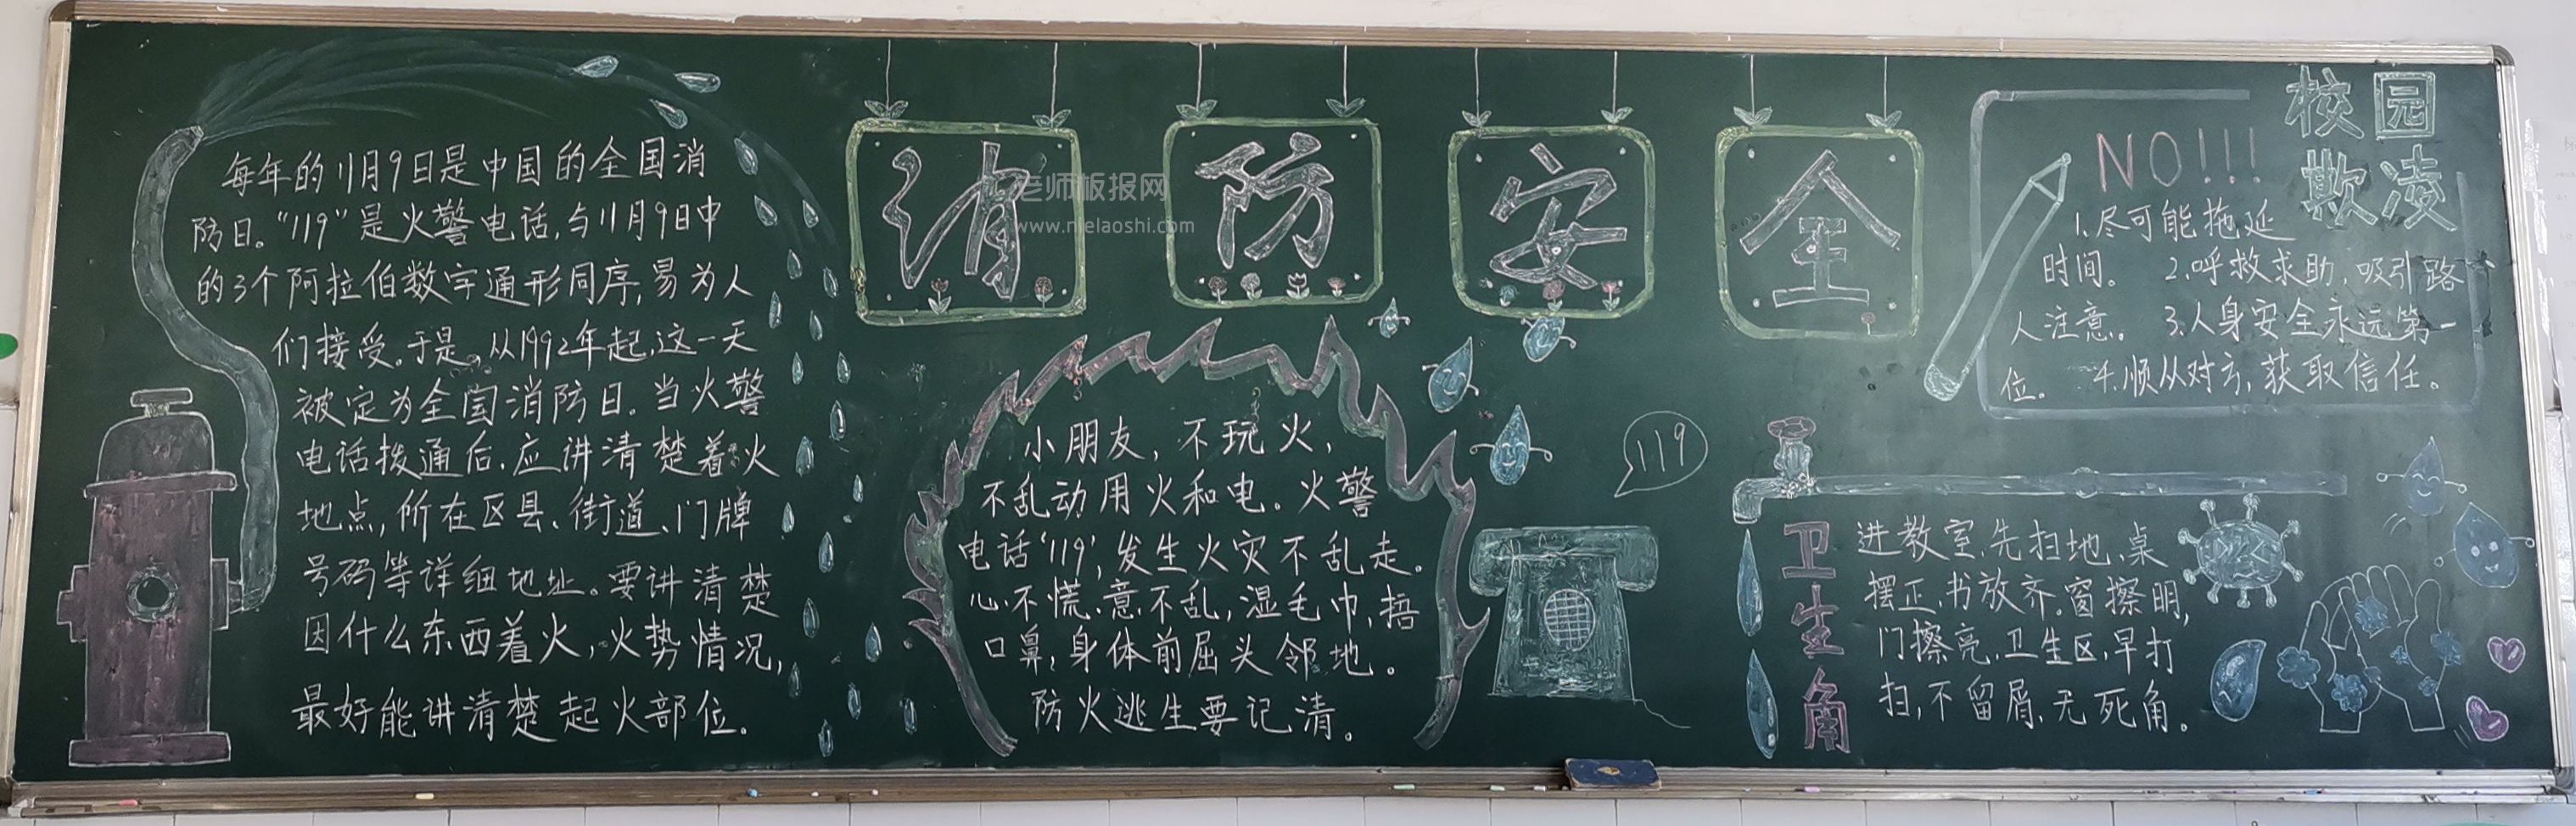 每年的11月9日是中国的全国消
防日。"119"是火警电话,与11月9日中
的3个阿拉伯数字通形同序,易为人
们接受。于是,从1992年起,这一天
被定为全国消防日。当火警
电话拨通后,应讲清楚着火
地点,所在区县、街道、门牌
号码等详细地址。要讲清楚
因什么东西着火,火势情况,
最好能讲清楚起火部位。
消防安全
老师板报网
www.melaoshi.com
小朋友,不玩火,
不乱动用火和电。火警
电话'119',发生火灾不乱走。
心不慌、意不乱,湿毛巾,捂
口鼻,身体前屈头邻地。
防火逃生要记清。
119
校园
欺凌
NO!!!
1.尽可能拖延
时间。 2.呼救求助,吸引路
人注意。 3.人身安全永远第一
位。 4.顺从对方,获取信任。
卫生角
进教室,先扫地,桌
摆正,书放齐。窗擦明,
门擦亮,卫生区,早打
扫,不留屑,无死角。